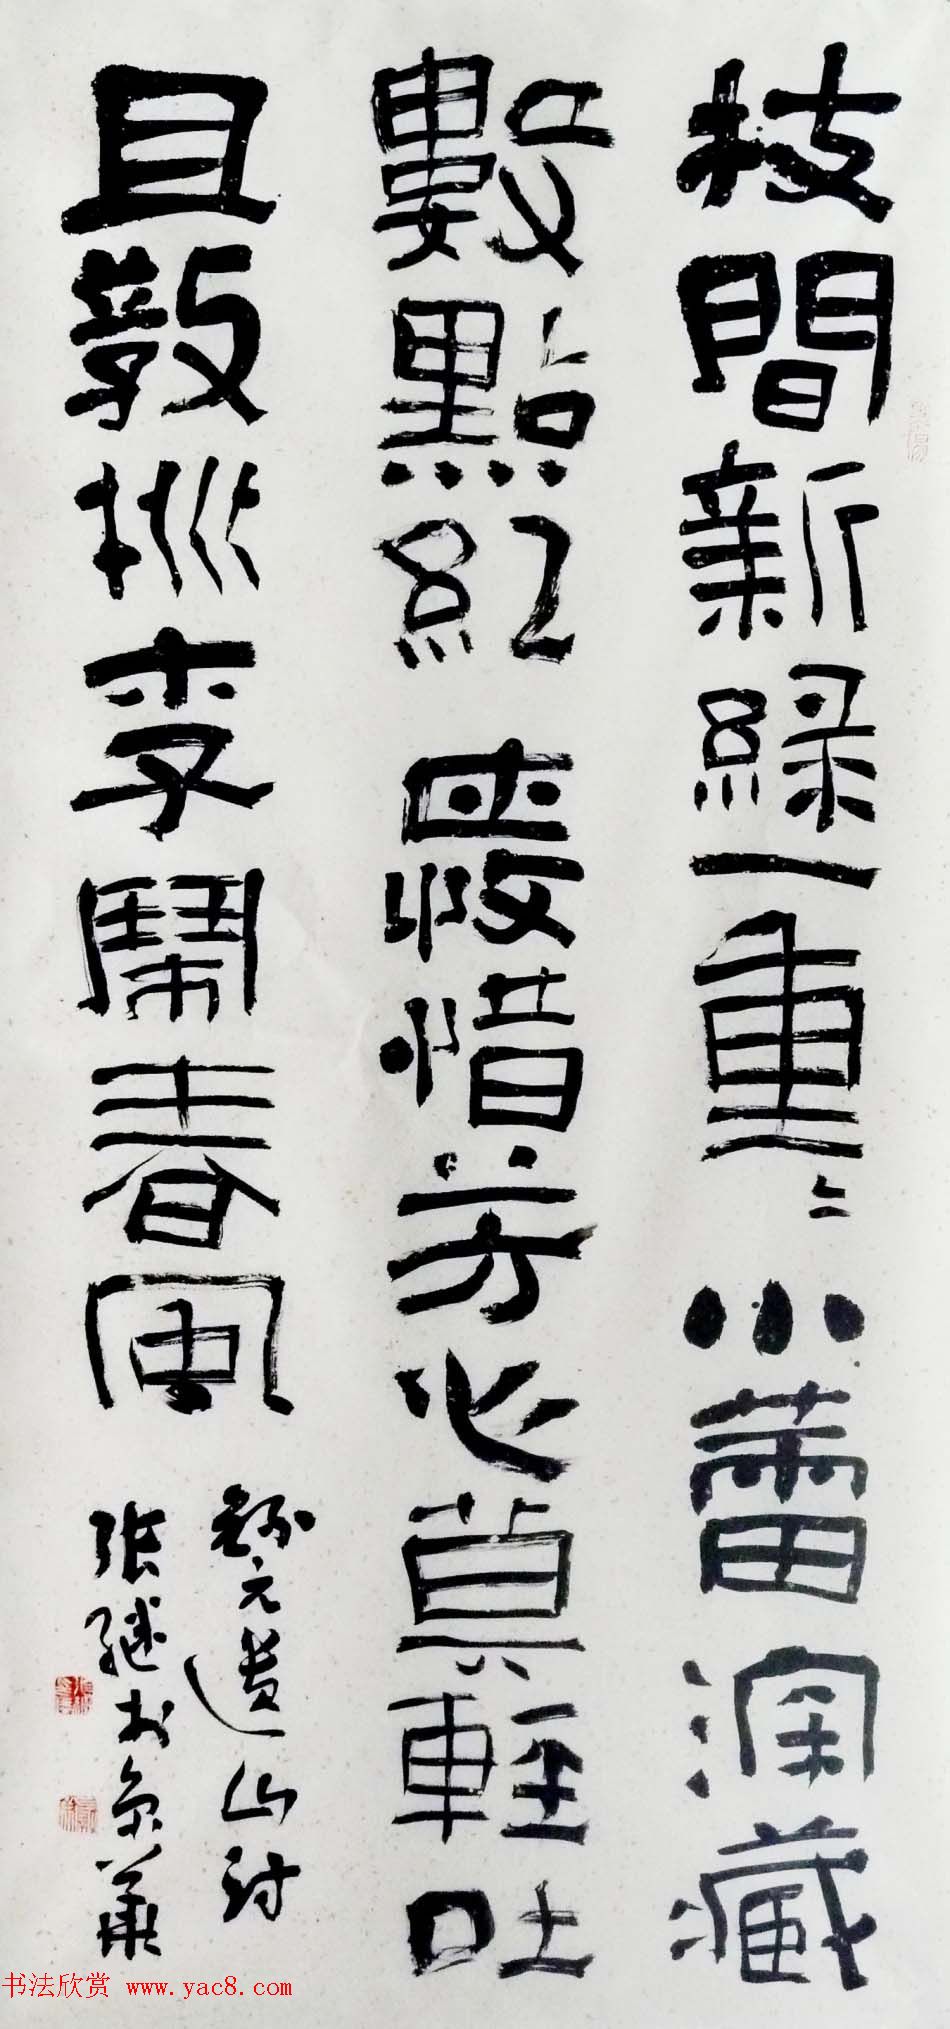 枝間新綠一重〻小蕾深藏
數點紅愛惜芳心莫輕吐
且教桃李鬧春風
錄元遺山詩
張繼於京華
书法欣赏 www.yac8.com